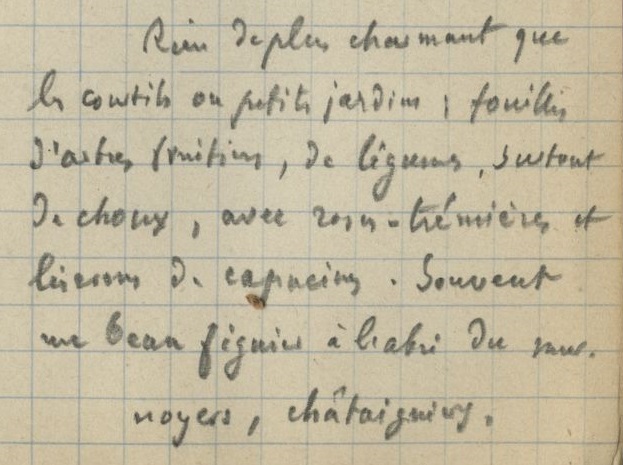 Rien de plus charmant que
les courtils ou petits jardins ; fouillis
d'arbres fruitiers, de légumes, surtout
de choux, avec roses-trémières et
liserons de capucines. Souvent
un beau figuier à l'abri du mur.
noyers, châtaigniers.